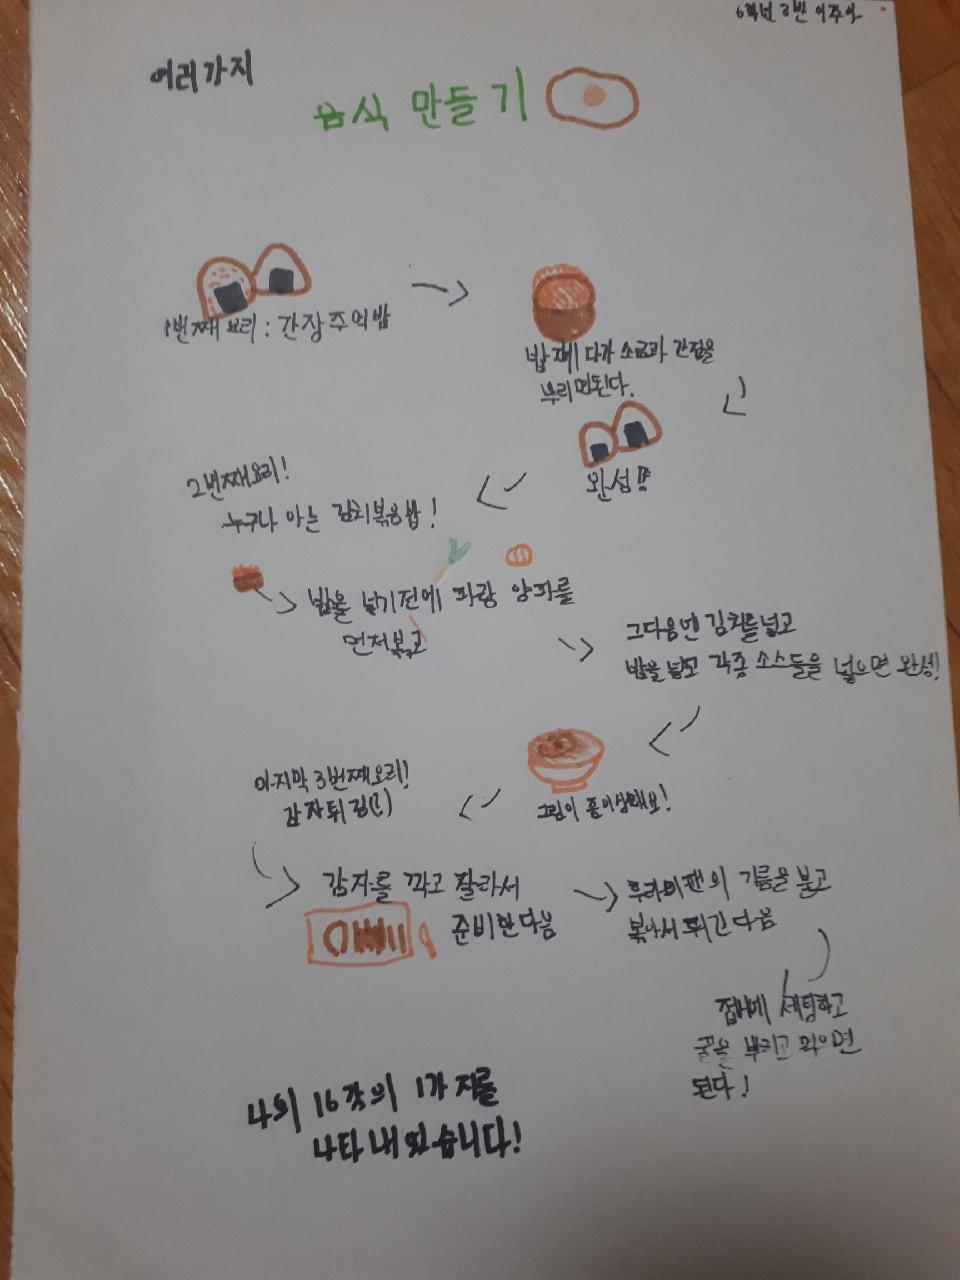 6학년 3반 이주아
여러가지
음식 만들기
1번째 요리 : 간장주먹밥
밥 재 다가 소금과 간장을
뿌리면된다.
완성!!
2번째요리!
누구나 아는 김치볶음밥!
밥을 넣기전에 파랑 양파를
먼저볶고
그다음엔 김치를넣고
밥을 넣고 각종 소스들을 넣으면 완성!
그림이 좀이상해요!
마지막 3번째요리!
감자튀김(!)
감자를 깍고 잘라서
준비한다음
후라이팬의 기름을 붇고
볶아서 튀긴다음
접시에 세팅하고
꿀을 뿌리고 먹으면
된다!
나의 16각의 1가지를
나타내었습니다!